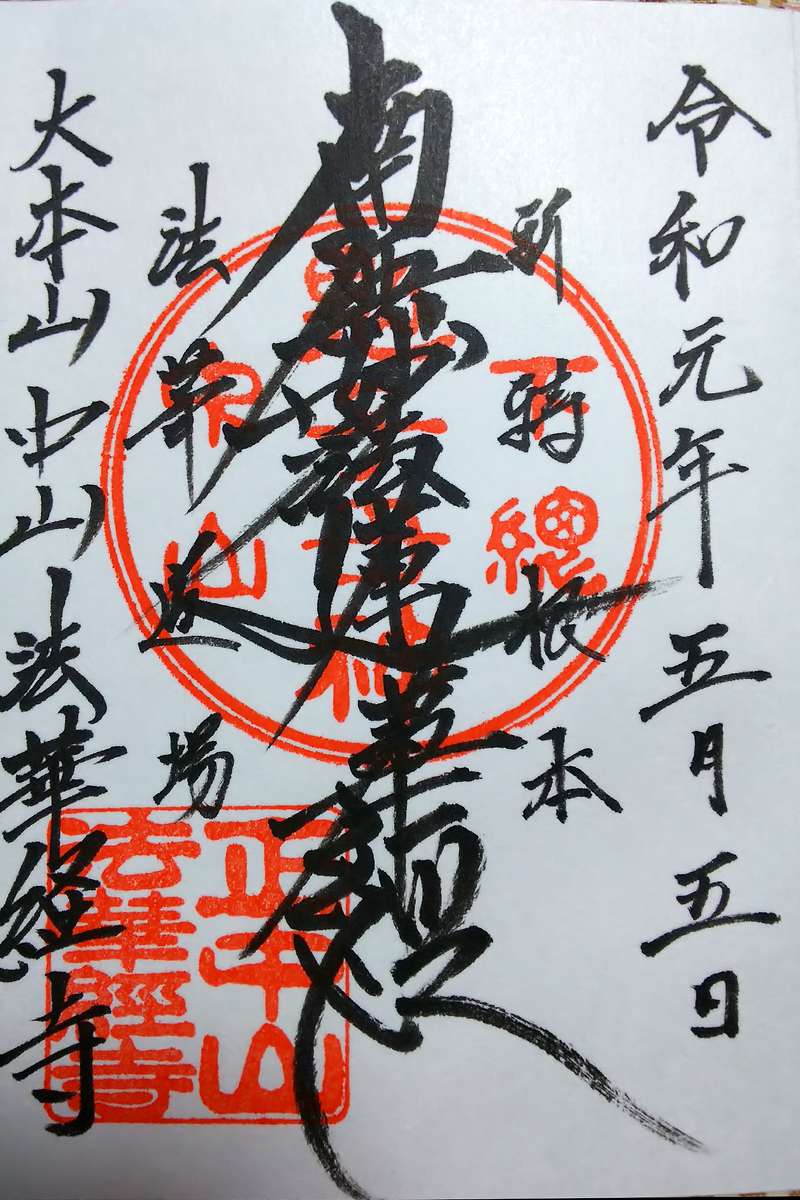 令和元年五月五日
祈祷根本
南無妙法蓮華経
法華道場
大本山中山法華経寺
正中山
法華經寺